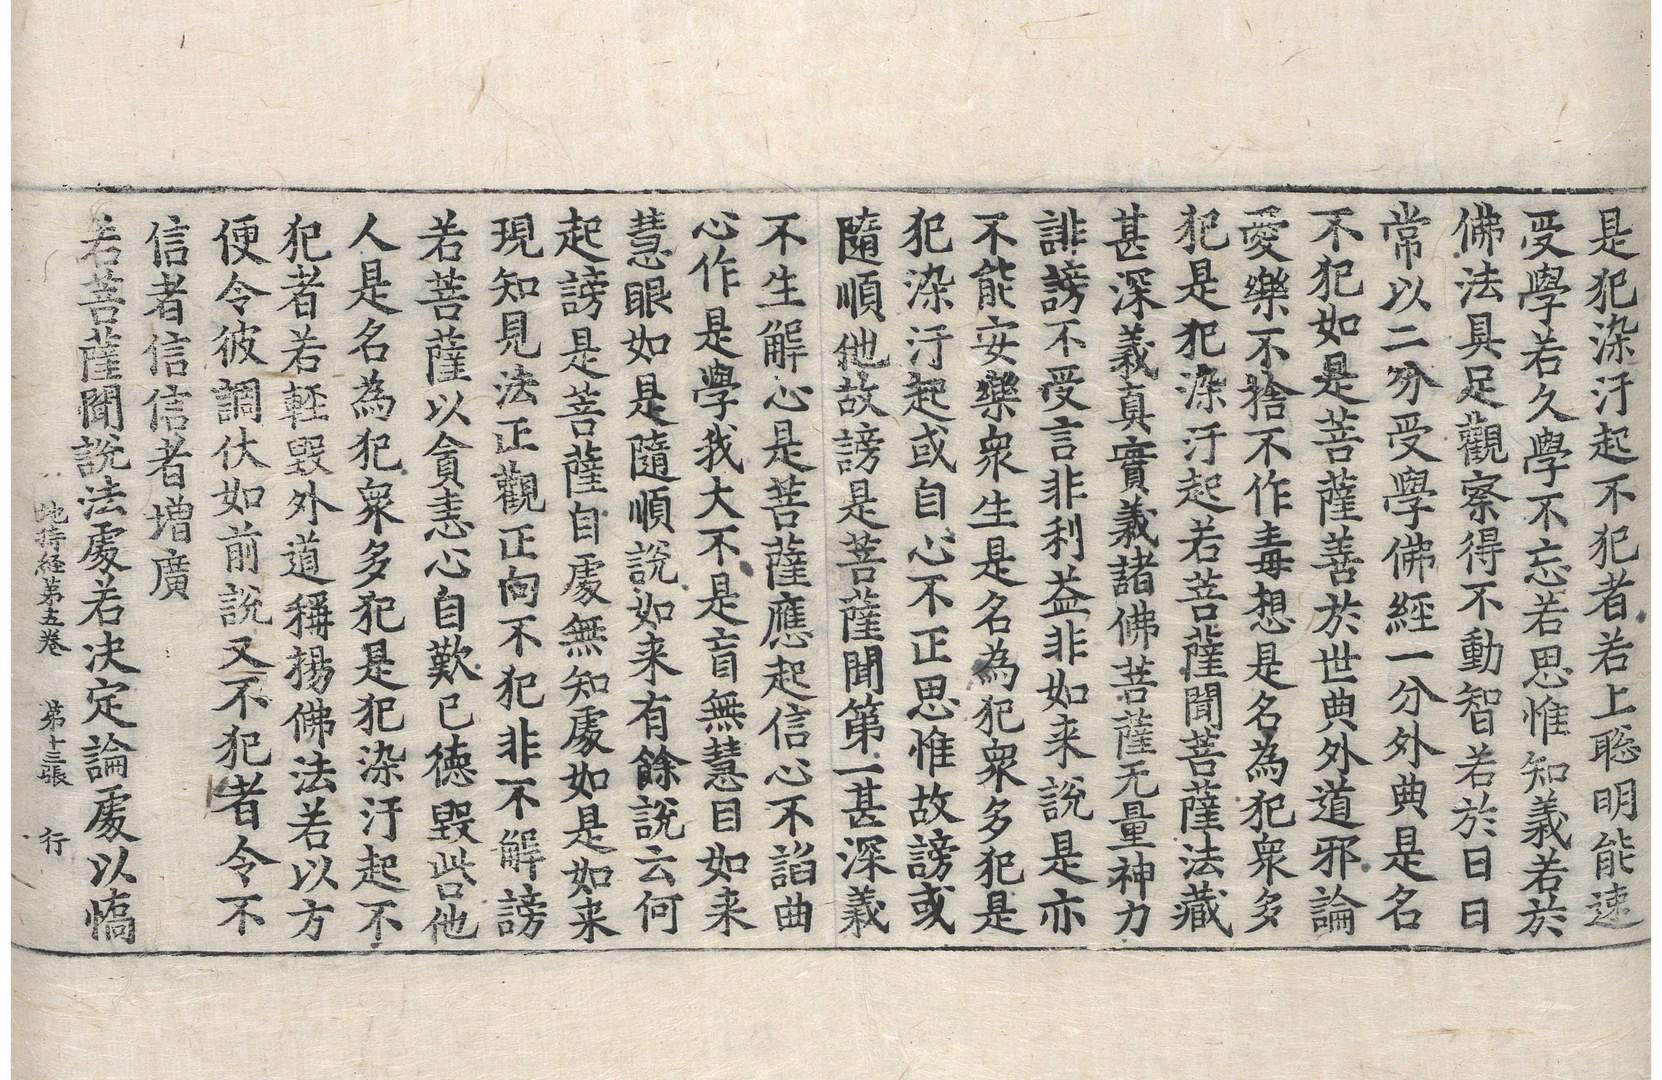 是犯染汙起不犯者若上聡明能速
受學若久學不忘若思惟知義若於
佛法具足觀察得不動智若於日日
常以二分受學佛經一分外典是名
不犯如是菩薩善於世典外道邪論
愛樂不捨不作毒想是名為犯衆多
犯是犯染汙起若菩薩聞菩薩法藏
甚深義真實義諸佛菩薩无量神力
誹謗不受言非利益非如来說是亦
不能安樂衆生是名為犯衆多犯是
犯染汙起或自心不正思惟故謗或
隨順他故謗是菩薩聞第一甚深義
不生解心是菩薩應起信心不諂曲
心作是學我大不是盲無慧目如来
慧眼如是隨順說如来有餘說云何
起謗是菩薩自處無知處如是如来
現知見法正觀正向不犯非不解謗
若菩薩以貪恚心自歎已德毀呰他
人是名為犯衆多犯是犯染汙起不
犯者若輕毀外道稱揚佛法若以方
便令彼調伏如前說又不犯者令不
信者信信者增廣
地持經第五卷 第十三張 行
若菩薩聞說法處若決定論處以憍